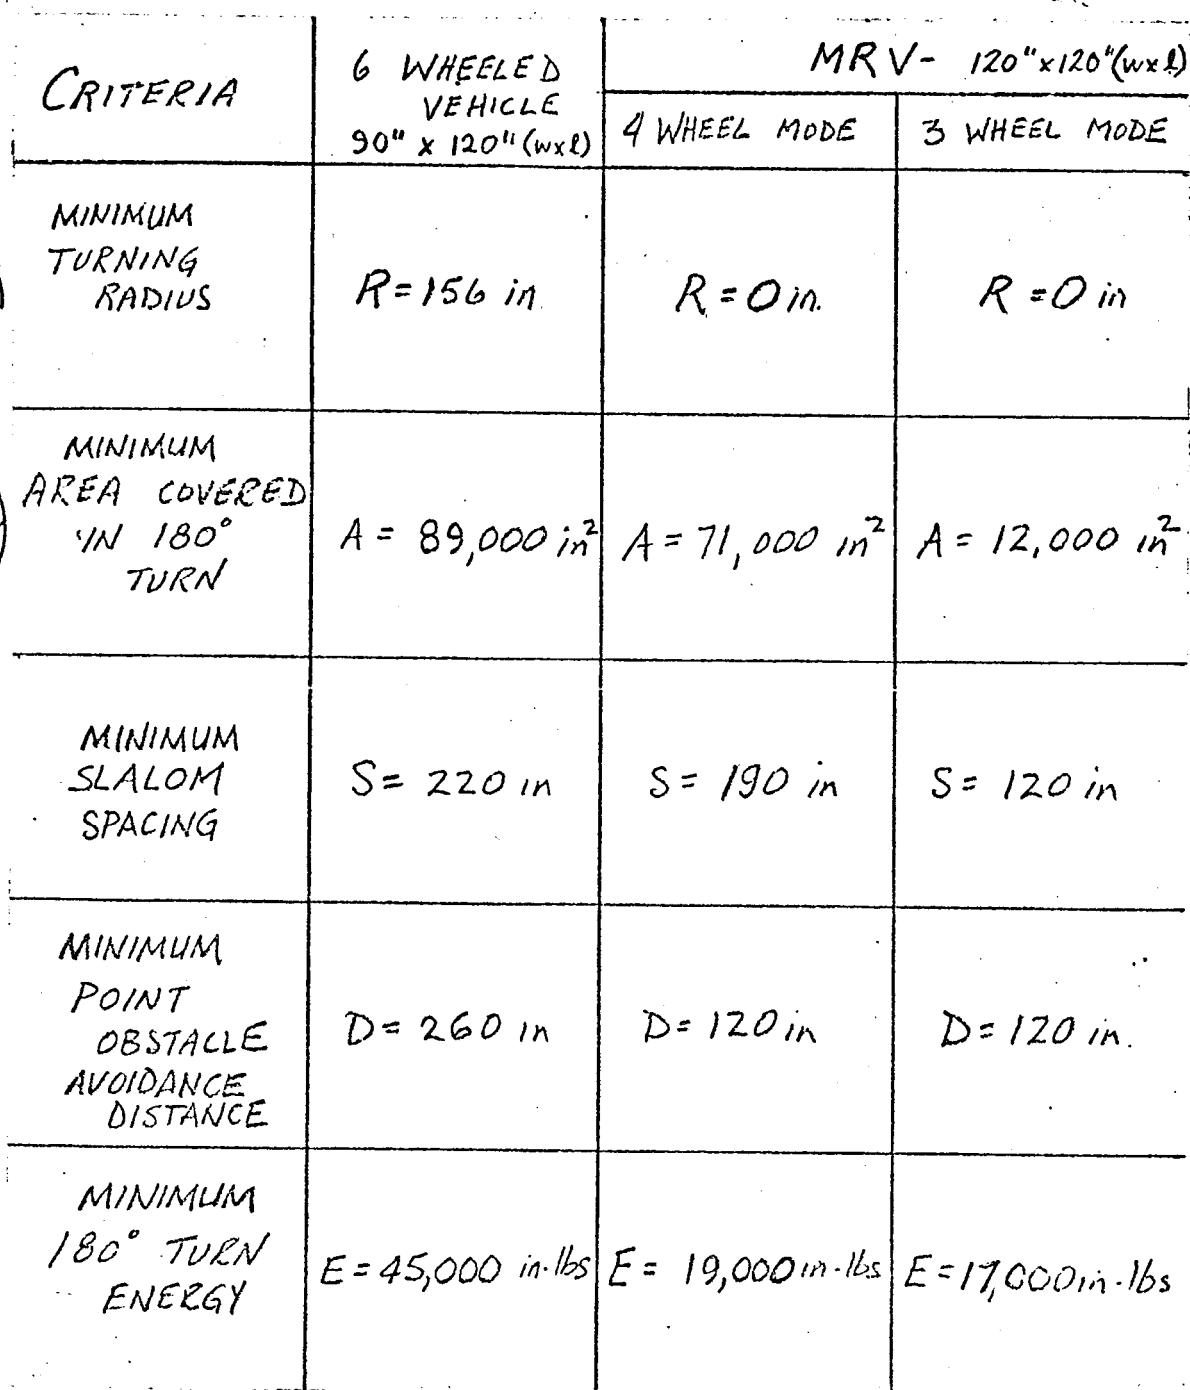 CRITERIA
6 WHEELED
VEHICLE
90" x 120" (wxl)
MRV- 120"x120"(wxl)
4 WHEEL MODE
3 WHEEL MODE
MINIMUM
TURNING
RADIUS
R=156 in.
R=0 in.
R=0 in
MINIMUM
AREA COVERED
IN 180°
TURN
A= 89,000 in²
A=71,000 in²
A= 12,000 in²
MINIMUM
SLALOM
SPACING
S= 220 in
S= 190 in
S= 120 in
MINIMUM
POINT
OBSTACLE
AVOIDANCE
DISTANCE
D= 260 in
D= 120 in
D= 120 in.
MINIMUM
180° TURN
ENERGY
E=45,000 in·lbs
E= 19,000 in·lbs
E=17,000 in·lbs